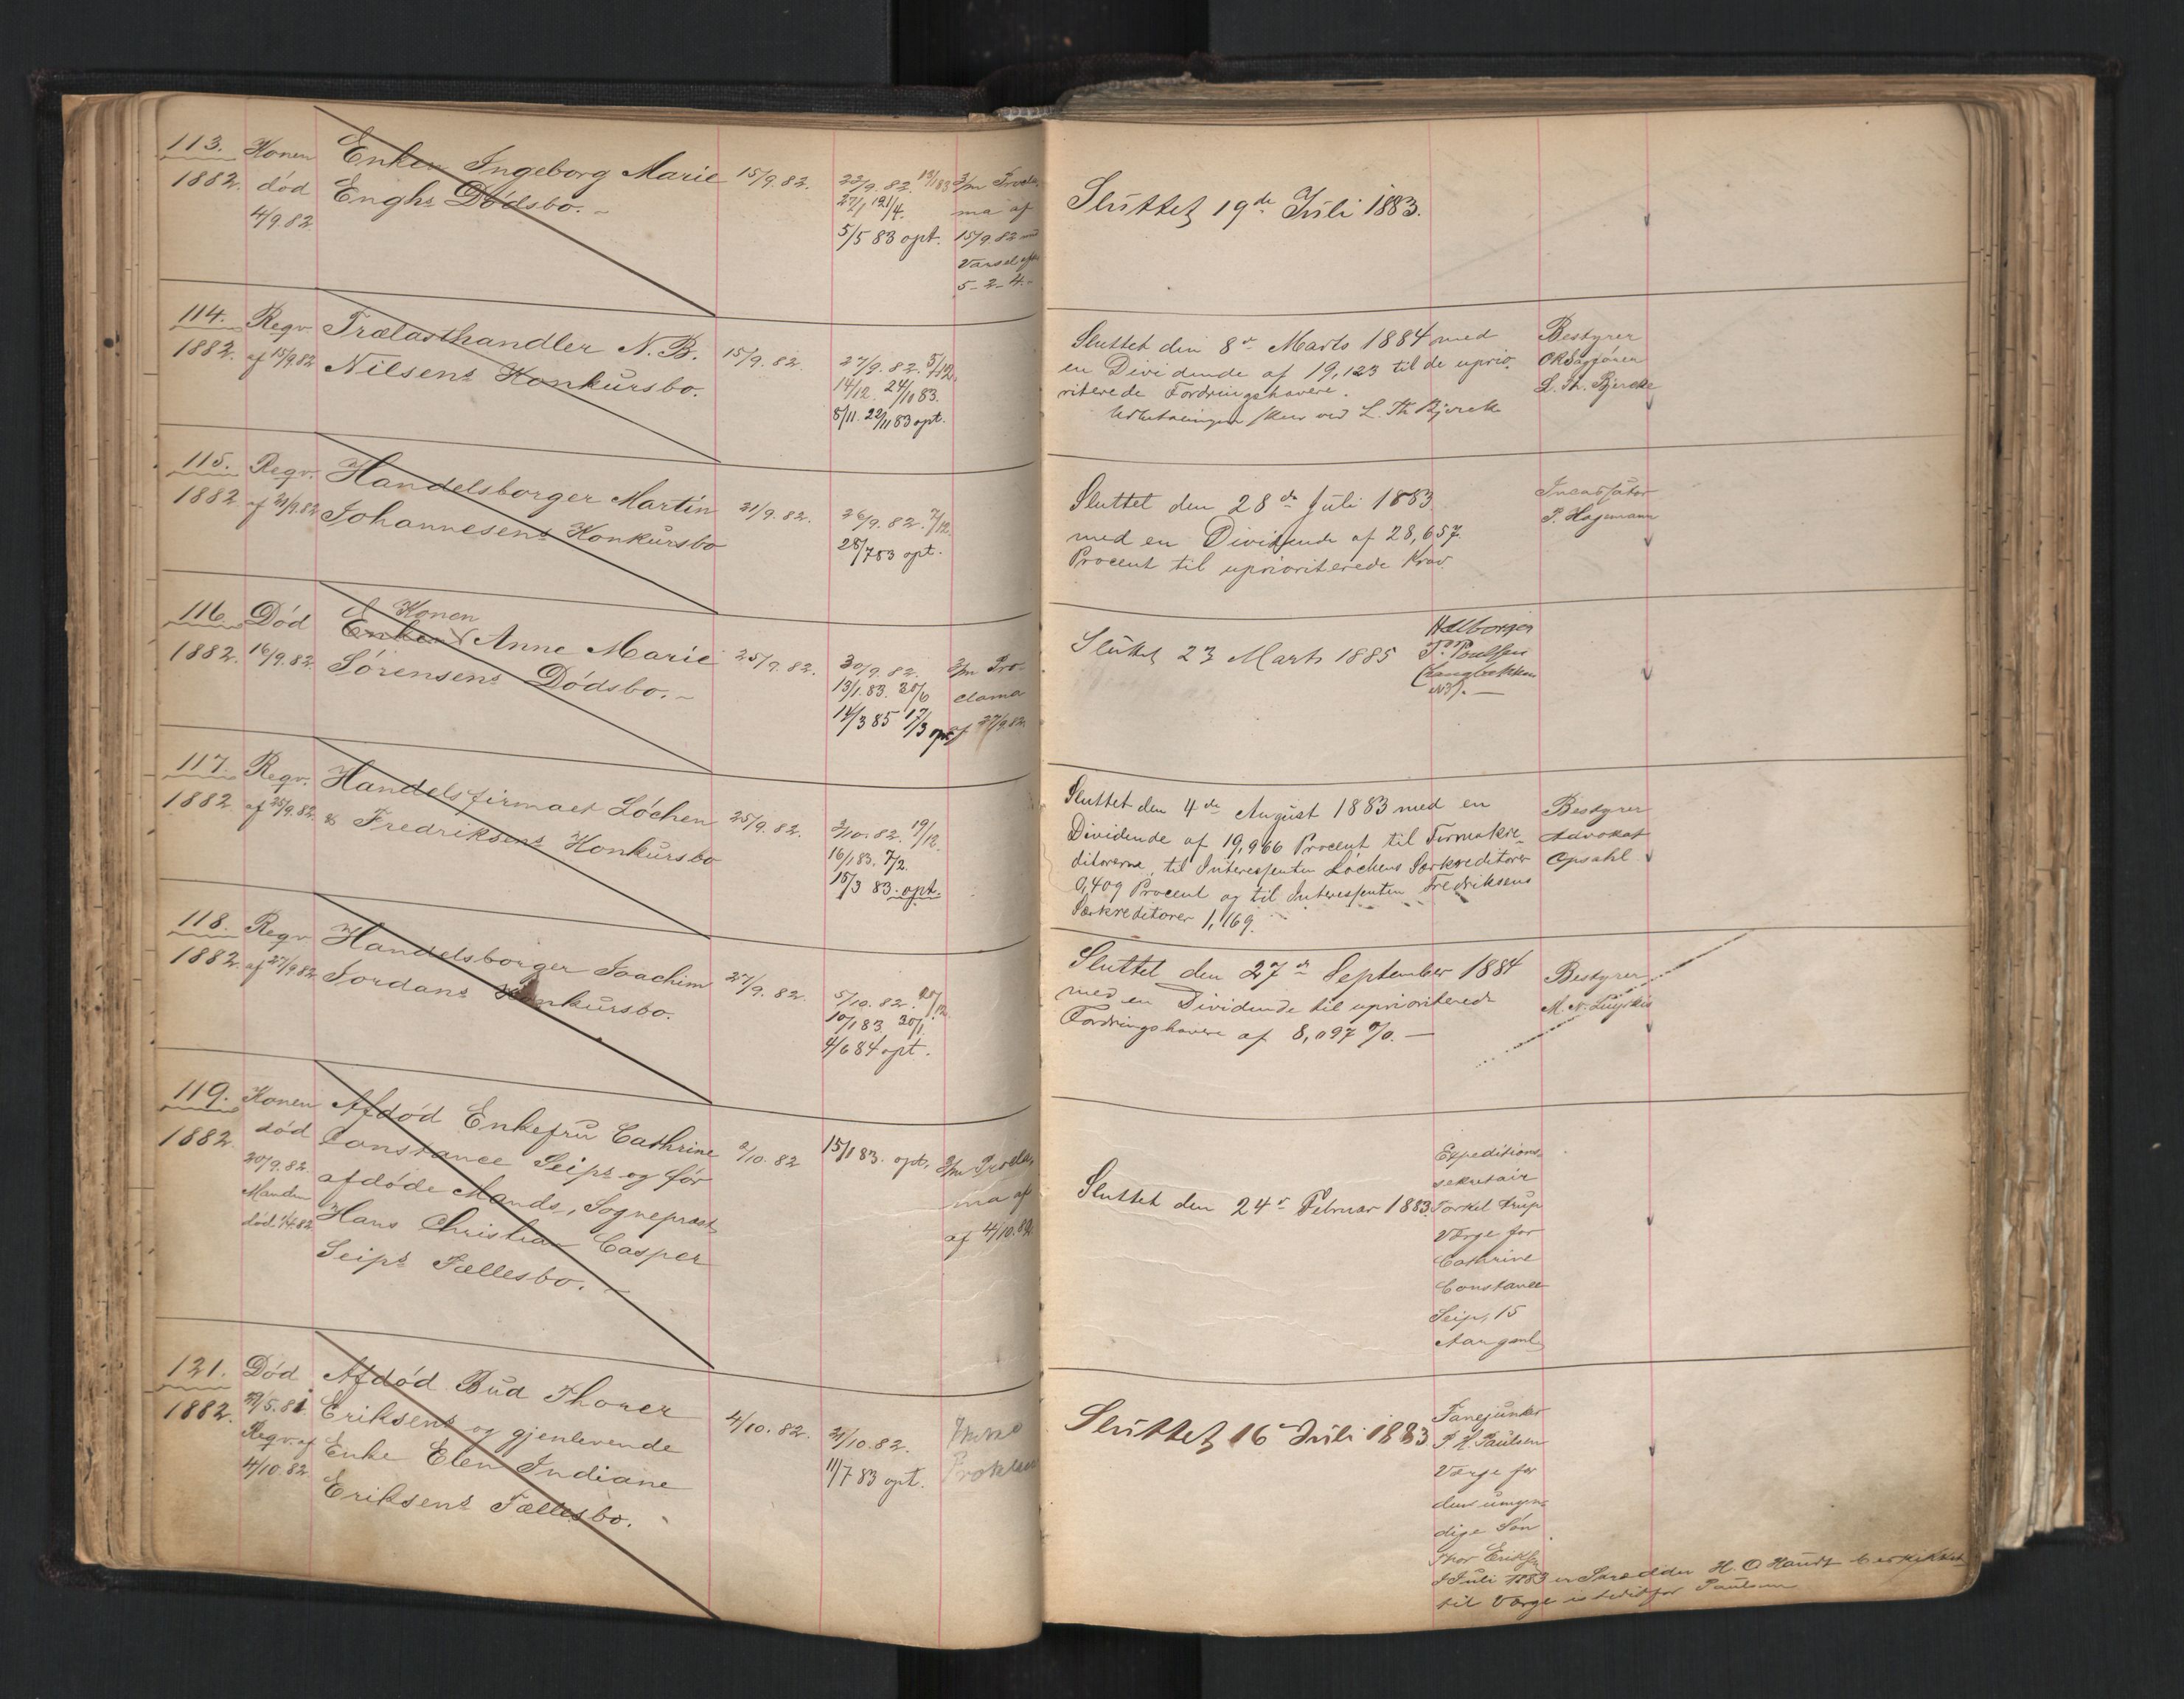 113. Konen Enken Ingeborg Marie 15/9.82. 22/9.82. 3/m Procla-
1882. død Enghs Dødsbo. 27/1 21/4. ma af
4/9.82. 5/5 83 opt. 15/9.82
Varsel
5-2-4.
Sluttet 19de Juli 1883.
114. Reqv. Trælasthandler N. B. 15/9.82. 27/9.82. 5/12.
1882. af 15/9.82 Nilsens Konkursbo. 14/12. 24/10 83.
8/11. 22/11 83 opt.
Sluttet den 8de Marts 1884 med
en Dividende af 19,123 til de uprio-
riterede Fordringshavere.
Udbetalingen skeer ved L. Th. Bjercke
Bestyrer
ORSagfører
L. Th. Bjercke
115. Reqv. Handelsborger Martin 21/9.82. 26/9.82. 7/12.
1882 af 21/9.82 Johannesens Konkursbo 28/7 83 opt.
Sluttet den 28de Juli 1883
med en Dividende af 28,657
Procent til uprioriterede Krav.
Incassator
P. Hagemann
116. Død Enken Konen Anne Marie 25/9.82. 30/9.82. 3/m Pro-
1882. 16/9.82. Sørensens Dødsbo. 13/1.83. 20/6 clama
14/3 85 17/3 opt. af 27/9.82.
Sluttet 23 Marts 1885
Hdlborger
P. Poulsen
117. Reqv. Handelsfirmaet Løchen 25/9.82. 3/10.82. 19/12.
1882 af 25/9.82. & Fredriksens Konkursbo 16/1 83. 7/2.
15/3 83. opt.
Sluttet den 4de August 1883 med en
Dividende af 19,966 Procent til Firmakre-
ditorerne, til Interessenten Løchens Særkreditorer
0,409 Procent og til Interessenten Fredriksens
Særkreditorer 1,169.
Bestyrer
Advokat
Opsahl
118. Reqv. Handelsborger Joachim 27/9.82. 5/10.82. 20/12.
1882. af 27/9 82 Jordans Konkursbo. 10/1 83 30/1.
4/6 84 opt.
Sluttet den 27de September 1884
med en Dividende til uprioriterede
Fordringshavere af 8,097 %.
Bestyrer
119. Konen Afdød Enkefru Cathrine 2/10.82 15/1 83. opt. 3/m Procla-
1882. død Constance Seips og før ma af
20/9.82. afdøde Mands, Sogneprest af 4/10.82
Manden Hans Christian Casper
død Seips Fællesbo.
Sluttet den 24de Februar 1883.
Expeditions-
sekretair
Torkel Trup
Værge for
Cathrine
Constance
Seip, 15
Aar gml.
121. Død Afdød Bud Thorer 4/10.82. 21/10.82. Ikke
1882. 29/5.81. Eriksens og gjenlevende 11/7 83 opt. Proklama
Reqv. af Enke Elen Indiane
4/10.82. Eriksens Fællesbo.
Sluttet 16 Juli 1883
Fanejunker
P. H. Paulsen
Værge for
den umyn-
dige Søn
Thor Eriksen
Juli 1883 er Skrædder H. O. beskikket
til Værge istedetfor Paulsen